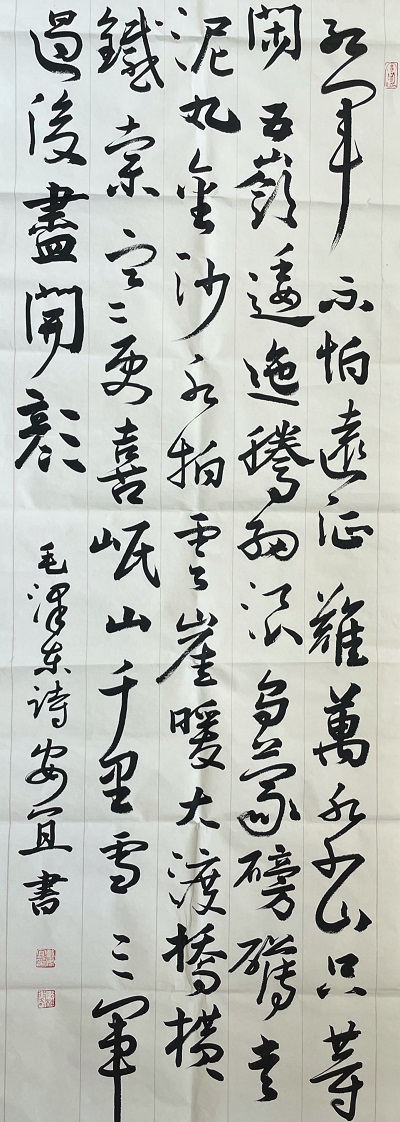 紅軍不怕遠征難萬水千山只等
閑五嶺逶迤騰細浪烏蒙磅礴走
泥丸金沙水拍雲崖暖大渡橋橫
鐵索寒更喜岷山千里雪三軍
過後盡開顏
毛澤東詩安宜書